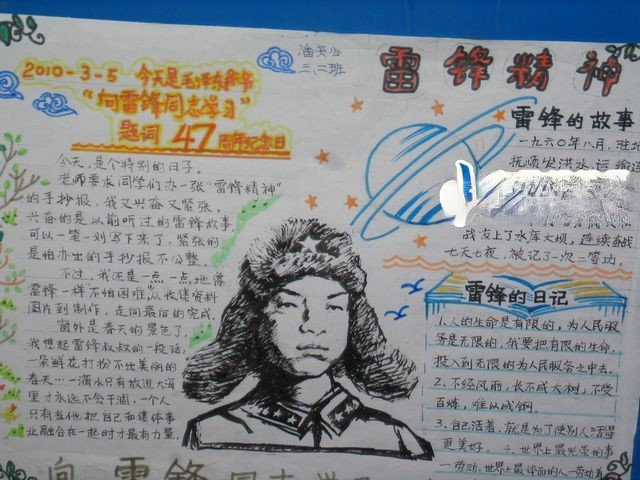 潘英心
三、二班
雷锋精神
2010-3-5 今天是毛泽东爷爷
“向雷锋同志学习”
题词47周年纪念日
今天，是个特别的日子。
老师要求同学们办一张“雷锋精神”
的手抄报，我又兴奋又紧张。
兴奋的是以前听过的雷锋故事，
可以一笔一划写下来了，紧张的
是怕办出的手抄报不公整。
不过，我还是一点一点地像
雷锋一样“不怕困难”，从收集资料
图片到制作，走向最后的完成。
窗外是春天的景色了，
我想起雷锋叔叔的一段话：
一朵鲜花打扮不出美丽的
春天…一滴水只有放进大海
里才永远不会干涸，一个人
只有当他把自己和集体事
业融合在一起时才最有力量。
雷锋的故事
一九六〇年八月，驻地
抚顺发洪水，运输
战友上了水库大坝，连续奋战
七天七夜，被记了一次二等功。
雷锋的日记
1、人的生命是有限的，为人民服
务是无限的，我要把有限的生命，
投入到无限的为人民服务之中去。
2、不经风雨，长不成大树，不受
百炼，难以成钢。
3、自己活着，就是为了使别人活得
更美好。4、世界上最光荣的事
—劳动，世界上最体面的人—劳动者
向雷锋同志学